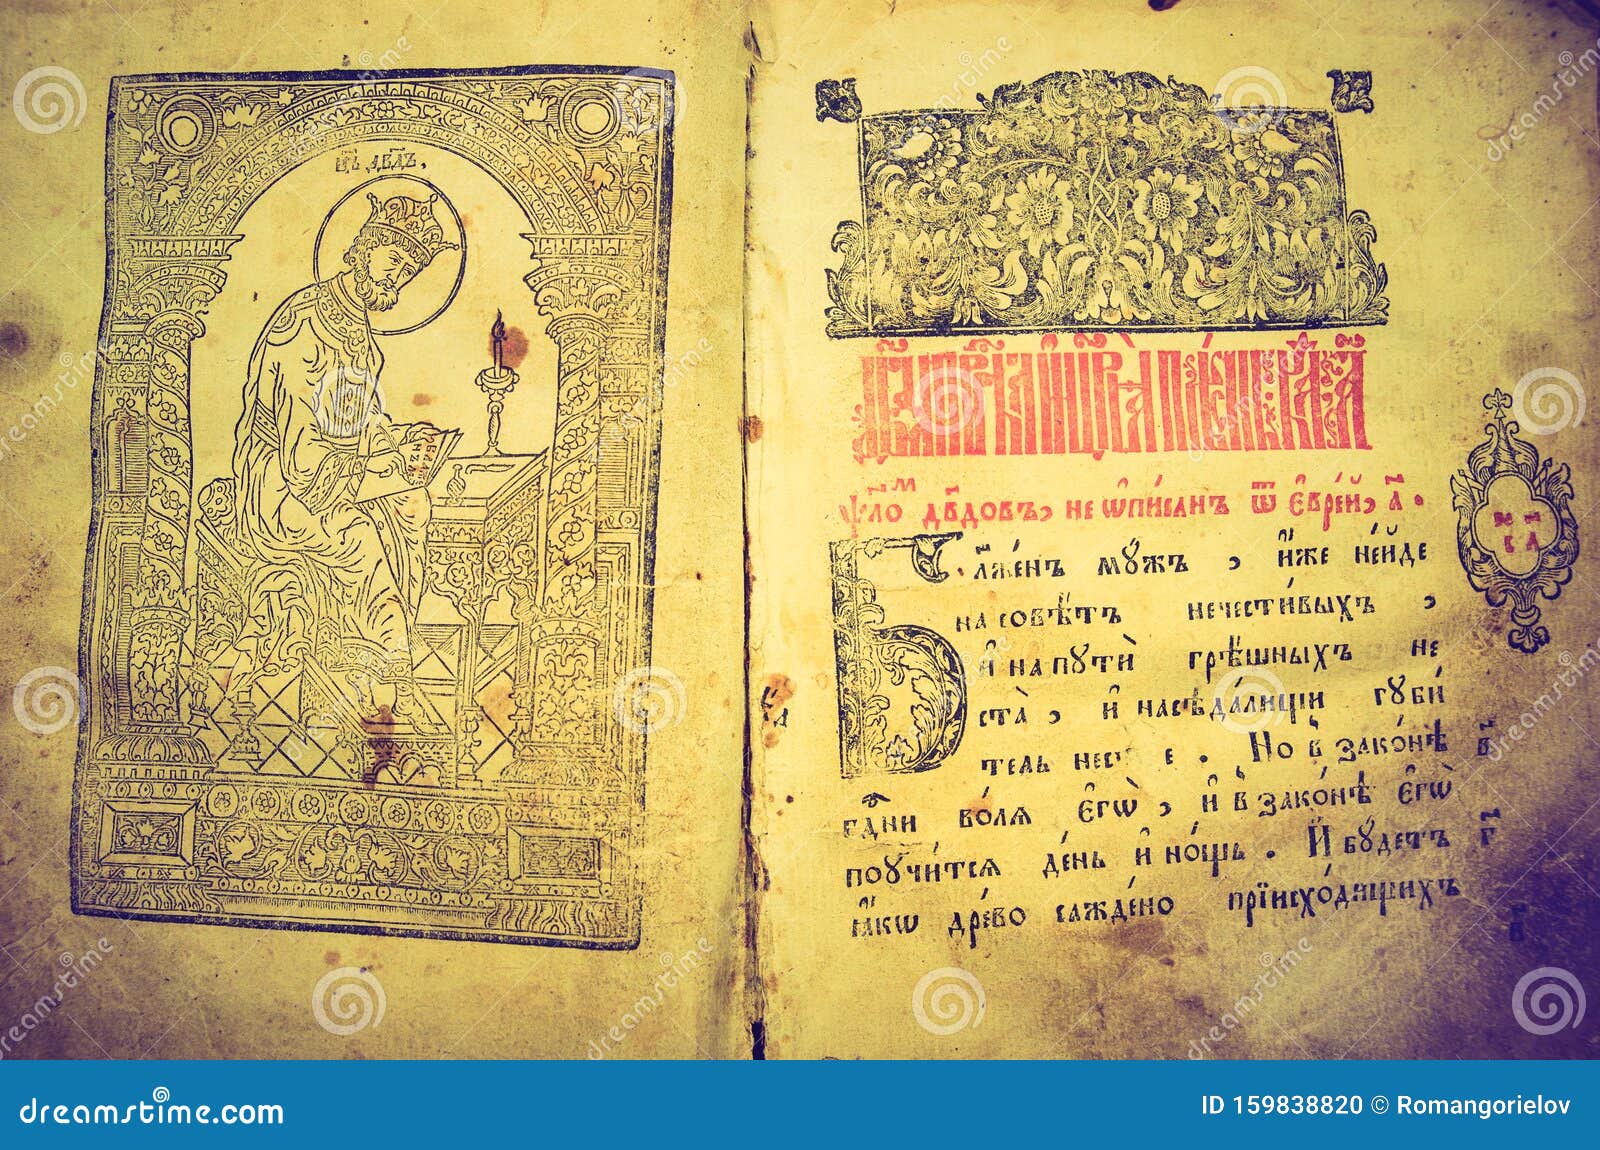 Цр҃ь Дв҃дъ,
Дв҃да прⷪ҇рока и цр҃ѧ пѣ́снь
Ѱаⷧ҇о́мъ Дв҃довъ, не ѡ҆пи́санъ ѿ є҆врє́й, а҃.
Бл҃же́нъ мꙋ́жъ, и҆́же не и҆́де
на совѣ́тъ нечести́выхъ,
и҆ на пꙋтѝ грѣ́шныхъ не
ста̀, и҆ на сѣда́лищи гꙋби́
тель не сѣ́де. Но в зако́нѣ
гдⷭ҇ни во́лѧ є҆гѡ̀, и҆ в зако́нѣ є҆гѡ̀
поꙋчи́тсѧ де́нь и҆ но́щь. И҆ бꙋ́детъ
ꙗ҆́кѡ дре́во сажде́но при и҆схо́дищихъ
в҃
г҃
dreamstime.com
ID 159838820 © Romangorielov